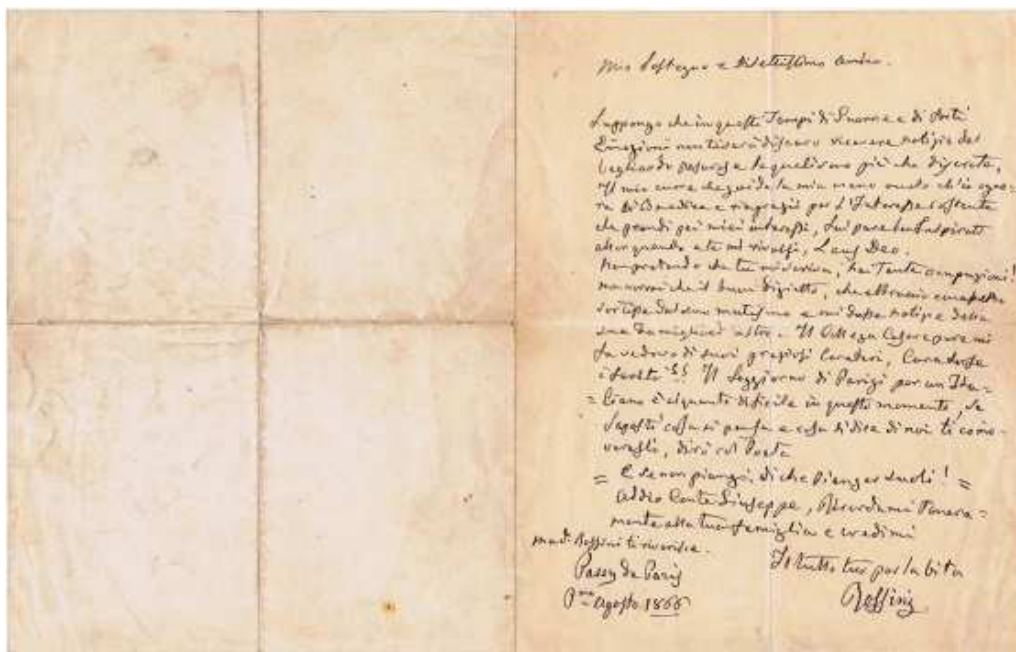 Mio Sostegno e Dilettissimo Amico.
Suppongo che in questi Tempi di Guerra e di Forti
Emozioni non ti sarà discaro ricevere notizie del
Pesarese le quali sono più che discrete,
Il mio cuore che guida la mia mano vuole ch'io ogno=
ra ti Benedica e ringrazi per l'Interesse costante
che prendi pei miei interessi, fui pure ben Inspirato
allorquando a te mi rivolsi, Laus Deo.
Non pretendo che tu mi scriva, hai Tante occupazioni!
ma vorrei che il buon
sortisse dal suo mutismo e mi dasse notizie della
sua famiglia ed altre. Il Collega Cesare pure mi
fa vedovo di suoi graziosi Caratteri,
!! Il Soggiorno di Parigi per un Ita=
=liano è alquanto difficile in questo momento, se
sapessi cosa si pensa e cosa si dice di noi ti
dirò col Poeta
= E se non piangi, di che Pianger suoli! =
Addio Conte Giuseppe, Ricordami Tenera=
mente alla tua famiglia e credimi
mad. Rossini ti riverisce.
Il tutto tuo per la vita
Rossini
Passy de Paris
Agosto 1866